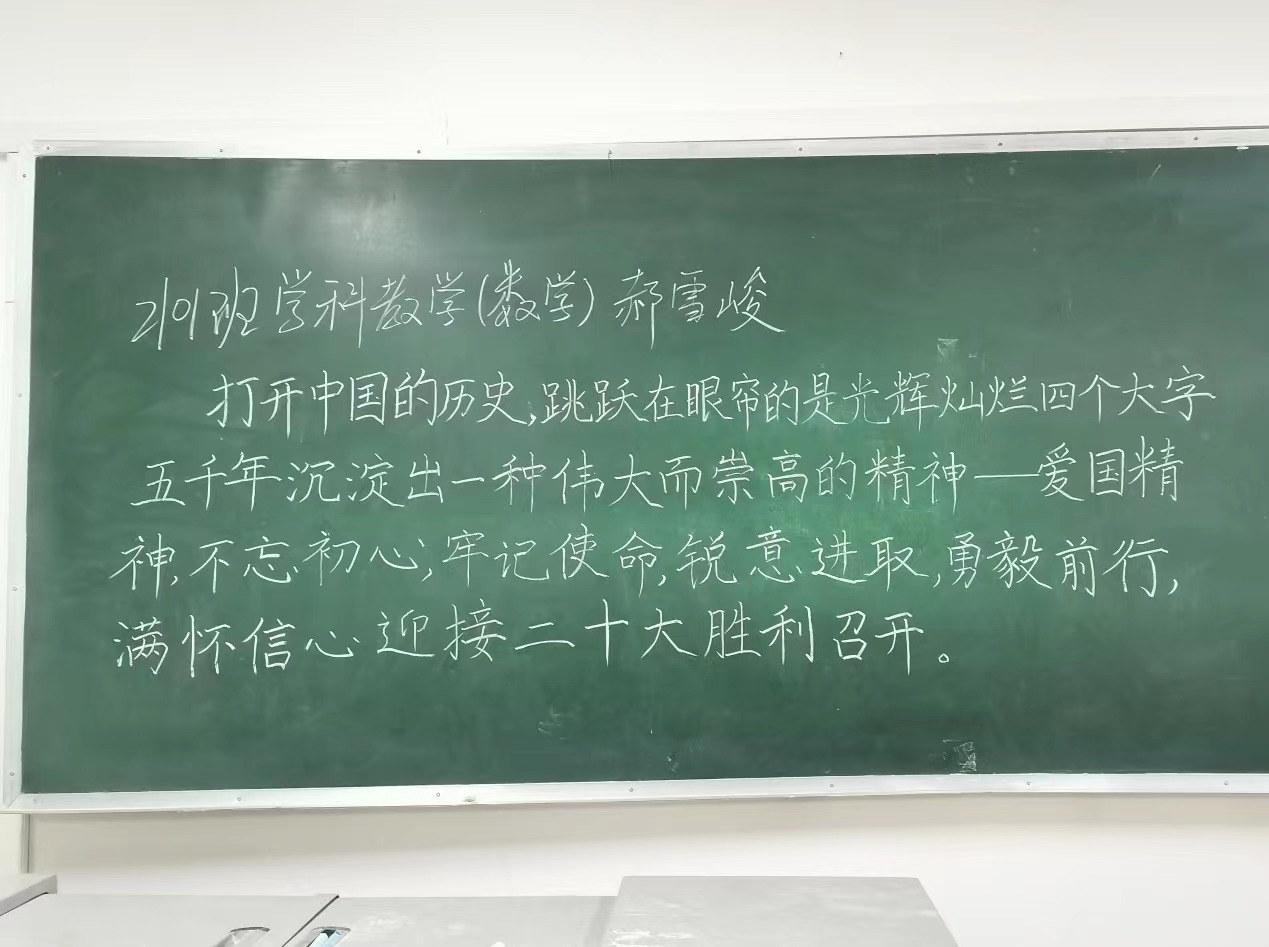 2101班学科教学(数学)郝雪峻
打开中国的历史,跳跃在眼帘的是光辉灿烂四个大字
五千年沉淀出一种伟大而崇高的精神——爱国精
神,不忘初心;牢记使命,锐意进取,勇毅前行,
满怀信心迎接二十大胜利召开。